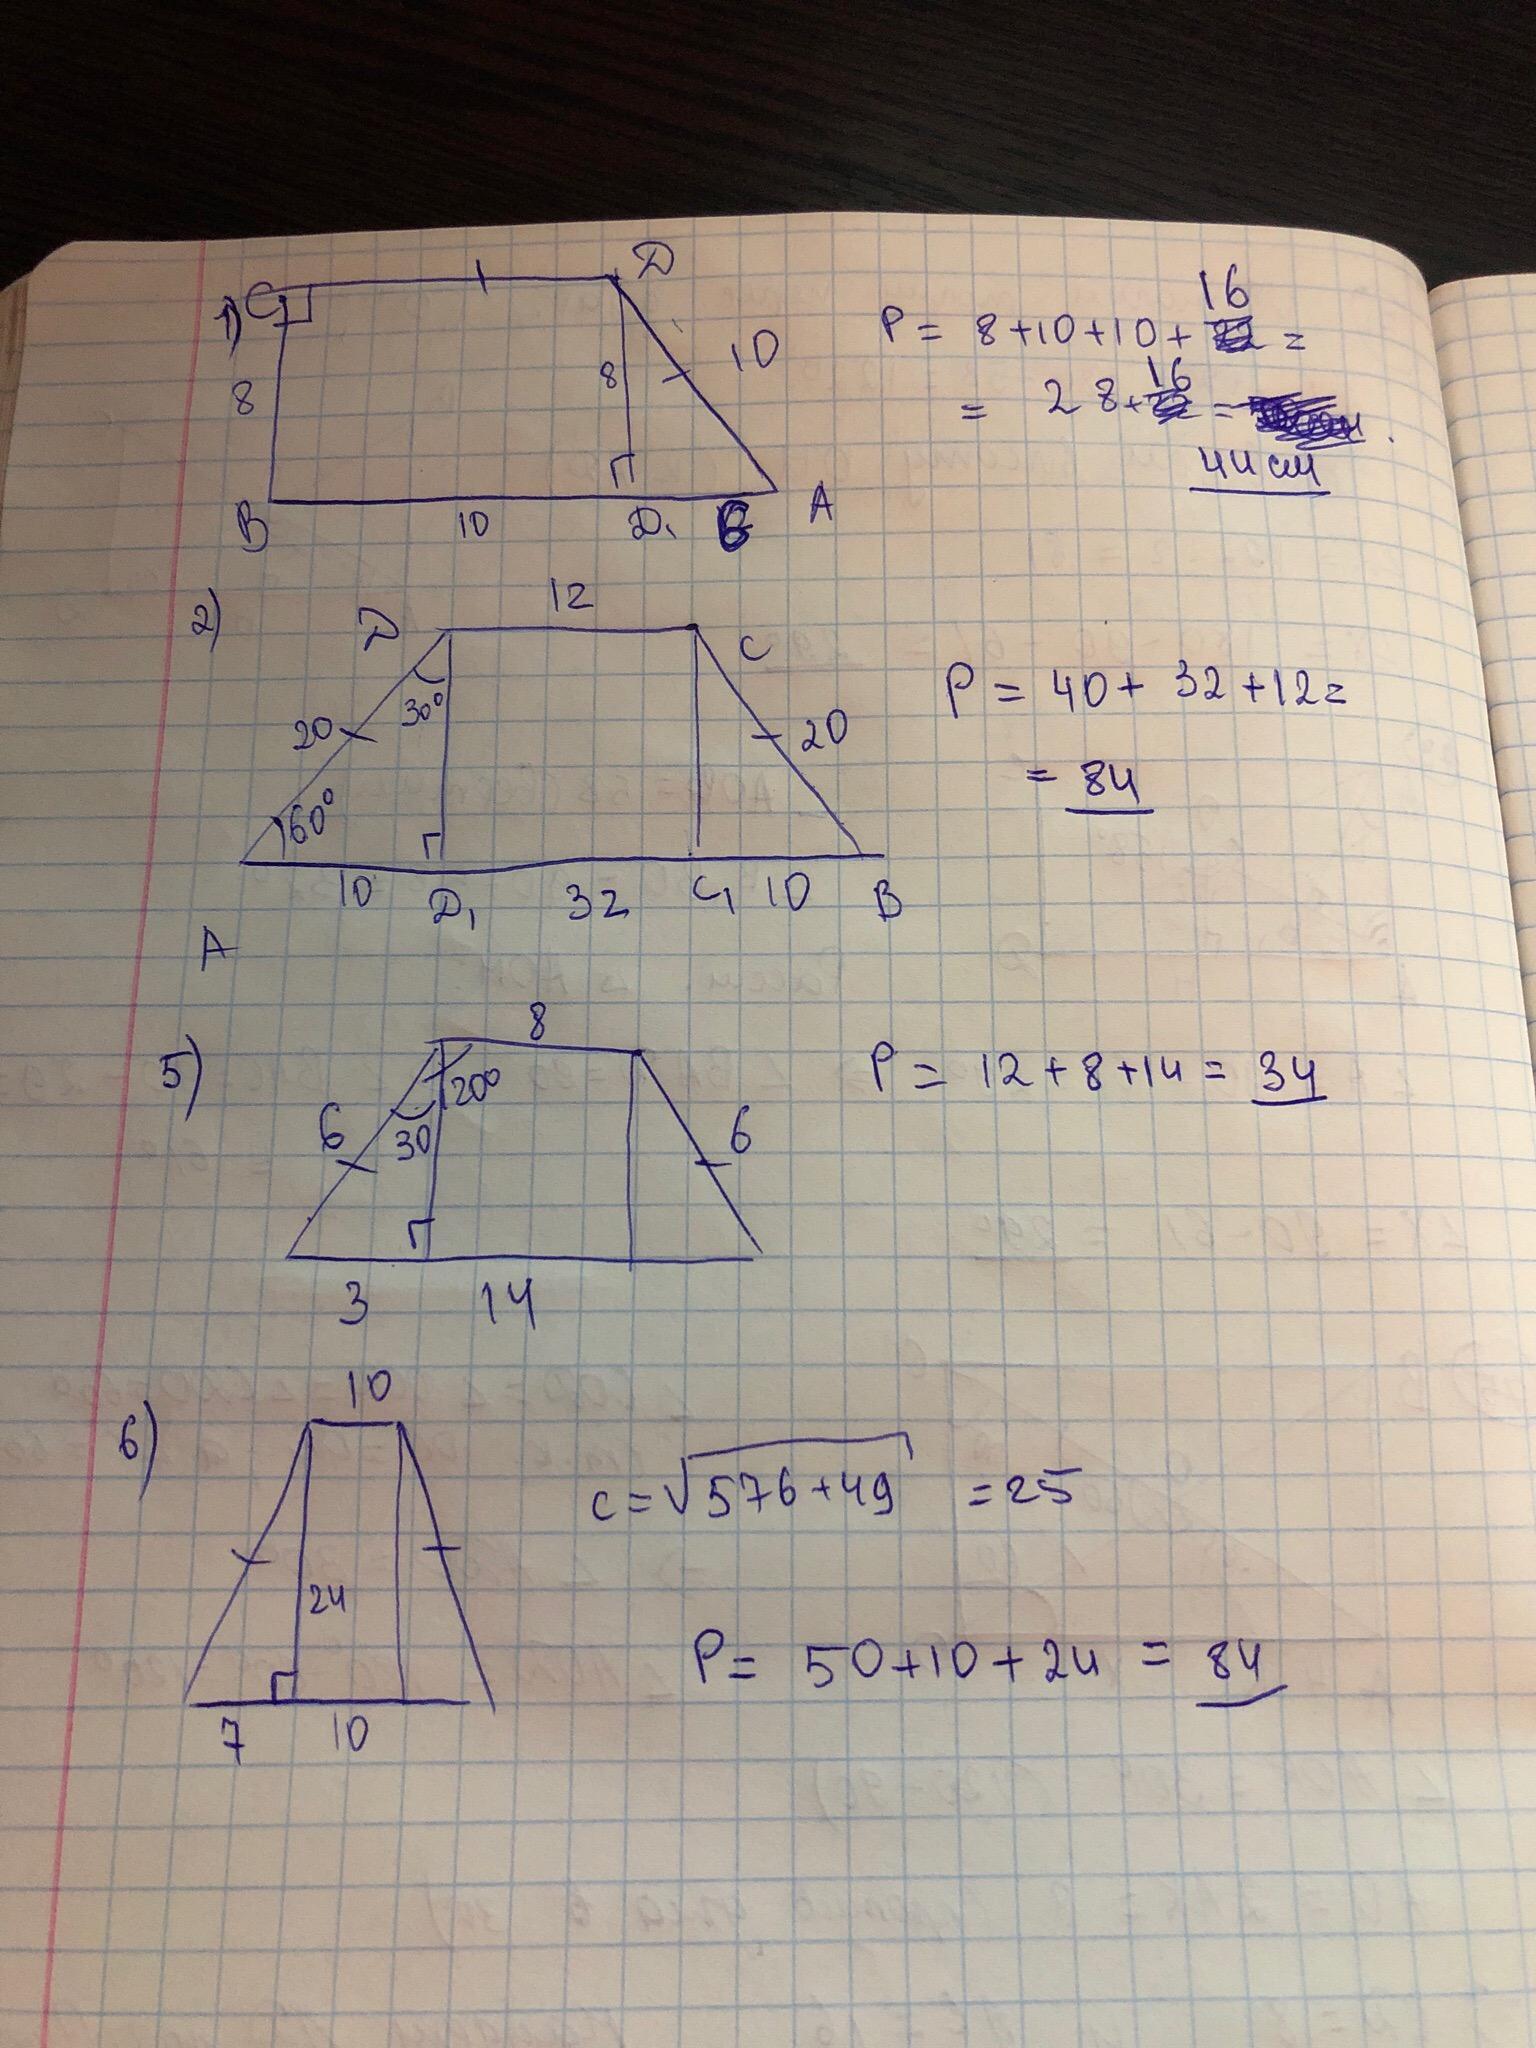 1) C Д
8 8 10
В 10 Д₁ А
P = 8+10+10+16 =
= 28+16 =
44 см
2) Д 12 C
20 30° 20
60°
10 Д₁ 32 C₁ 10 B
A
P = 40+32+12=
= 84
5) 8
120°
6 30 6
3 14
P = 12+8+14 = 34
6) 10
24
7 10
c = √576+49 = 25
P = 50+10+24 = 84